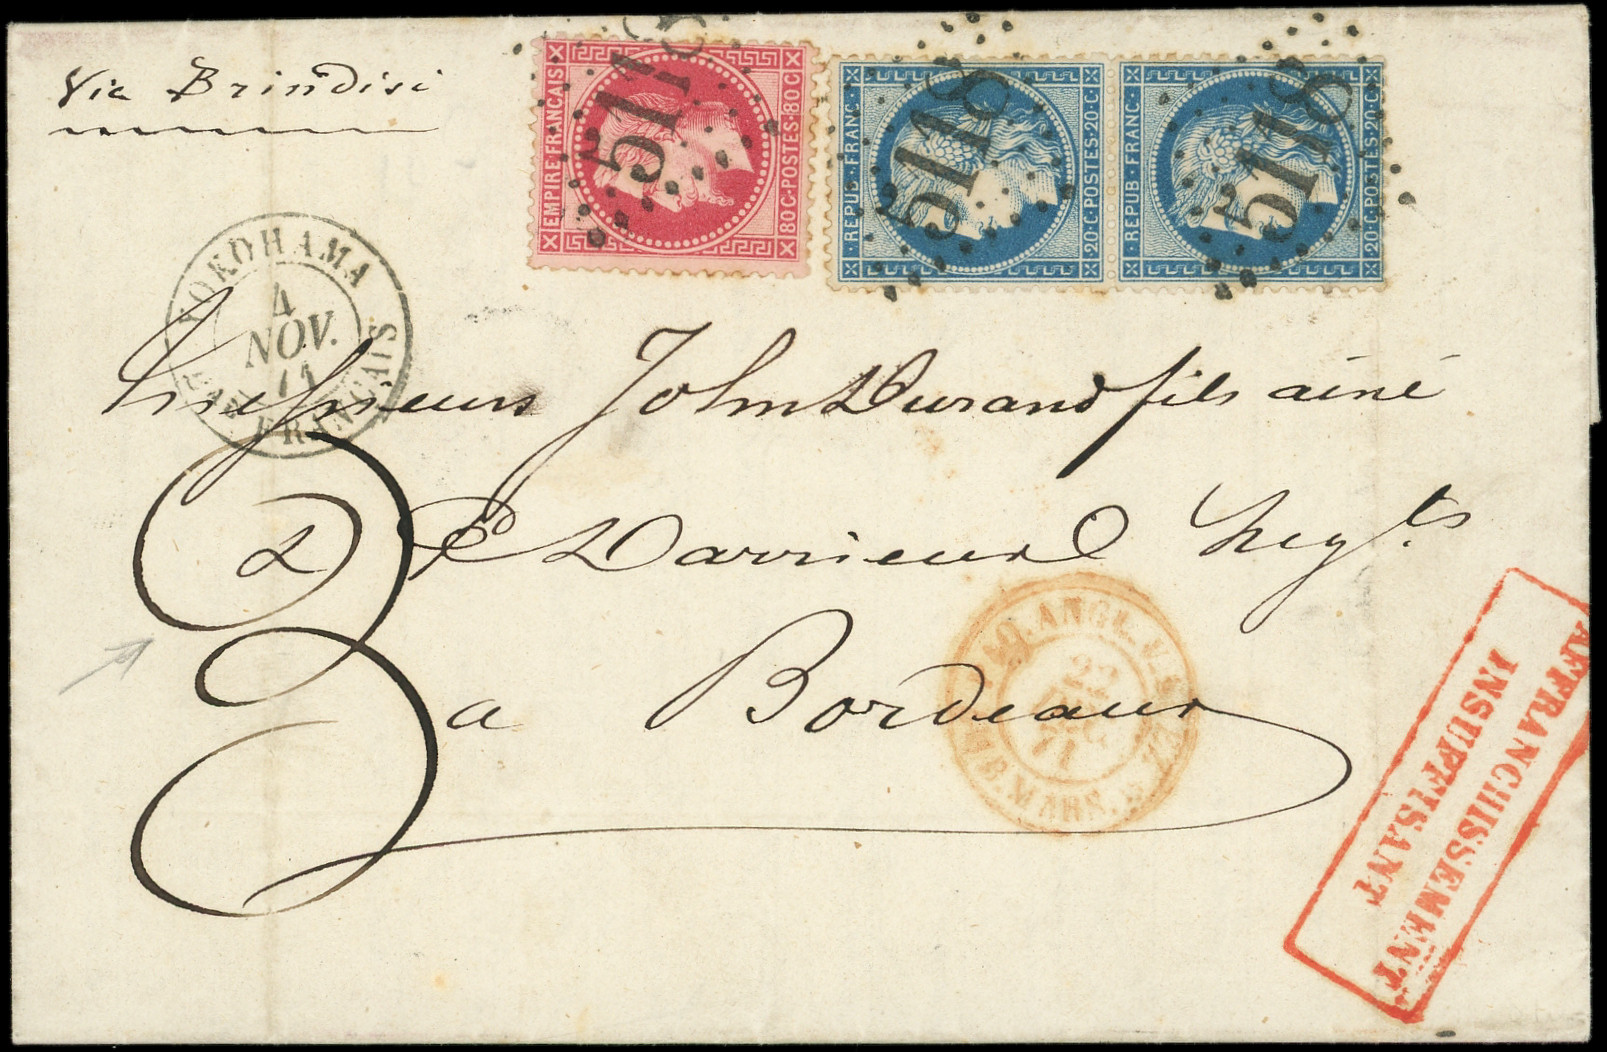 Via Brindisi
5118
EMPIRE FRANCAIS
80 C · POSTES · 80 C
5118
REPUB · FRANC ·
20 · C · POSTES · 20 · C
5118
REPUB · FRANC ·
20 · C · POSTES · 20 · C
YOKOHAMA
4
NOV.
71
BAU FRANÇAIS
Messieurs John Durand fils ainé
& Darrieux Negts
a Bordeaux
3
2
ANGL.
22
DEC
71
AMB. MARS.
AFFRANCHISSEMENT
INSUFFISANT